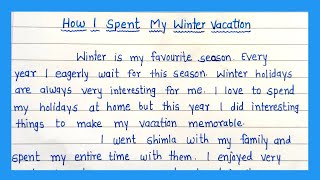 How I Spent My Winter Vacation
Winter is my favourite season. Every
year I eagerly wait for this season. Winter holidays
are always very interesting for me. I love to spend
my holidays at home but this year I did interesting
things to make my vacation memorable.
I went shimla with my family and
spent my entire time with them. I enjoyed very